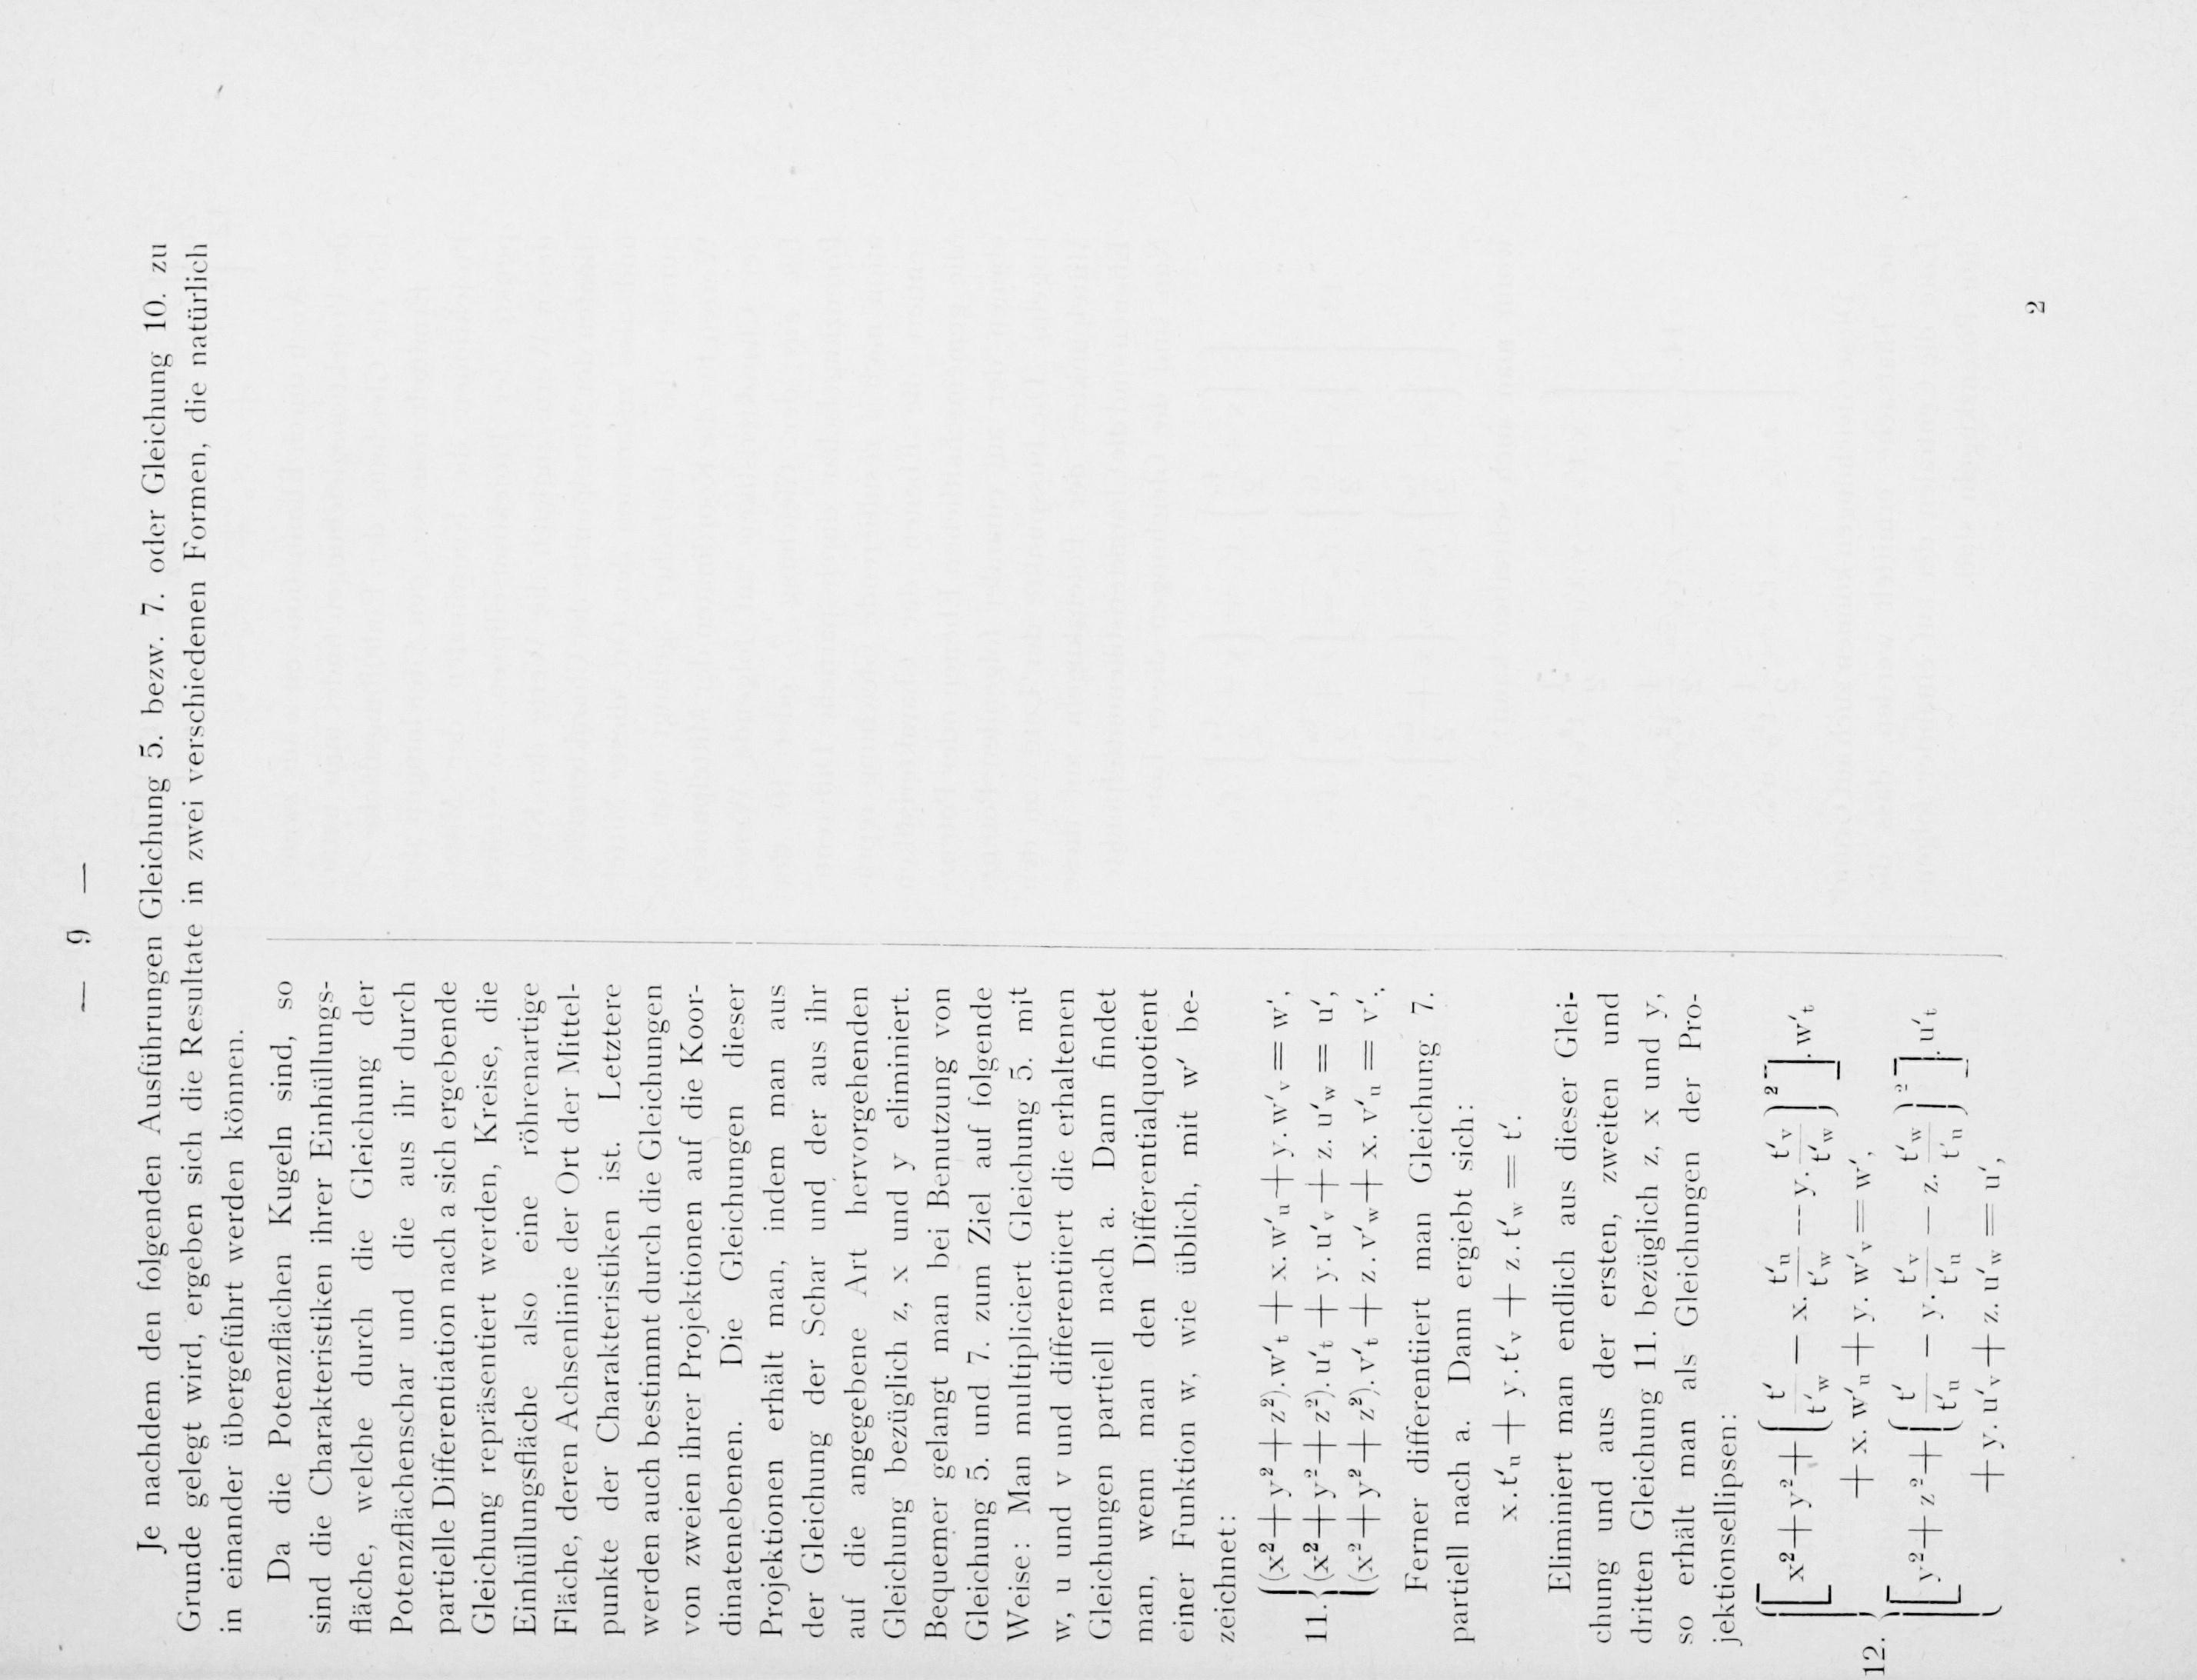 — 9 —
Je nachdem den folgenden Ausführungen Gleichung 5. bezw. 7. oder Gleichung 10. zu
Grunde gelegt wird, ergeben sich die Resultate in zwei verschiedenen Formen, die natürlich
in einander übergeführt werden können.
Da die Potenzflächen Kugeln sind, so
sind die Charakteristiken ihrer Einhüllungs-
fläche, welche durch die Gleichung der
Potenzflächenschar und die aus ihr durch
partielle Differentiation nach a sich ergebende
Gleichung repräsentiert werden, Kreise, die
Einhüllungsfläche also eine röhrenartige
Fläche, deren Achsenlinie der Ort der Mittel-
punkte der Charakteristiken ist. Letztere
werden auch bestimmt durch die Gleichungen
von zweien ihrer Projektionen auf die Koor-
dinatenebenen. Die Gleichungen dieser
Projektionen erhält man, indem man aus
der Gleichung der Schar und der aus ihr
auf die angegebene Art hervorgehenden
Gleichung bezüglich z, x und y eliminiert.
Bequemer gelangt man bei Benutzung von
Gleichung 5. und 7. zum Ziel auf folgende
Weise: Man multipliciert Gleichung 5. mit
w, u und v und differentiiert die erhaltenen
Gleichungen partiell nach a. Dann findet
man, wenn man den Differentialquotient
einer Funktion w, wie üblich, mit w′ be-
zeichnet:
(x²+y²+z²).w′t + x.w′u + y.w′v = w′,
11. (x²+y²+z²).u′t + y.u′v + z.u′w = u′,
(x²+y²+z²).v′t + z.v′w + x.v′u = v′.
Ferner differentiiert man Gleichung 7.
partiell nach a. Dann ergiebt sich:
x.t′u + y.t′v + z.t′w = t′.
Eliminiert man endlich aus dieser Glei-
chung und aus der ersten, zweiten und
dritten Gleichung 11. bezüglich z, x und y,
so erhält man als Gleichungen der Pro-
jektionsellipsen:
[x²+y²+(t′/t′w − x.t′u/t′w − y.t′v/t′w)²].w′t
+ x.w′u + y.w′v = w′,
12.
[y²+z²+(t′/t′u − y.t′v/t′u − z.t′w/t′u)²].u′t
+ y.u′v + z.u′w = u′,
2